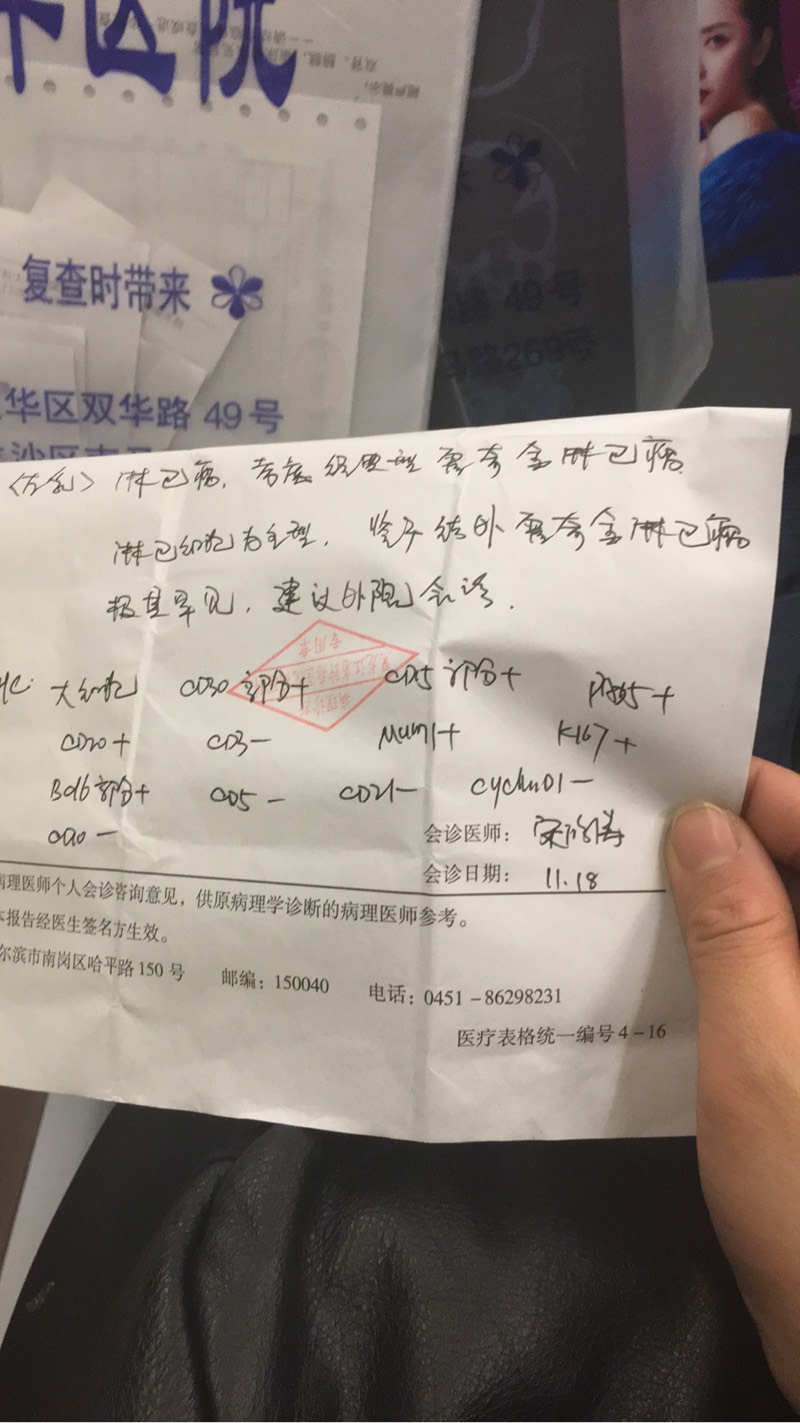 华医院
复查时带来
华区双华路 49号
路 49号
马路269号
<左乳> 淋巴瘤, 考虑 经典型 霍奇金淋巴瘤
淋巴细胞为主型, 鉴于结外霍奇金淋巴瘤
极其罕见, 建议外院会诊.
大细胞 CD30 部分+ CD15 部分+ PAX5+
CD20+ CD3- Mum1+ Ki67+
Bcl6部分+ CD5- CD21- CyclinD1-
CD10-
会诊医师:
会诊日期: 11.18
病理医师个人会诊咨询意见,供原病理学诊断的病理医师参考。
本报告经医生签名方生效。
尔滨市南岗区哈平路150号 邮编:150040 电话:0451-86298231
医疗表格统一编号4-16